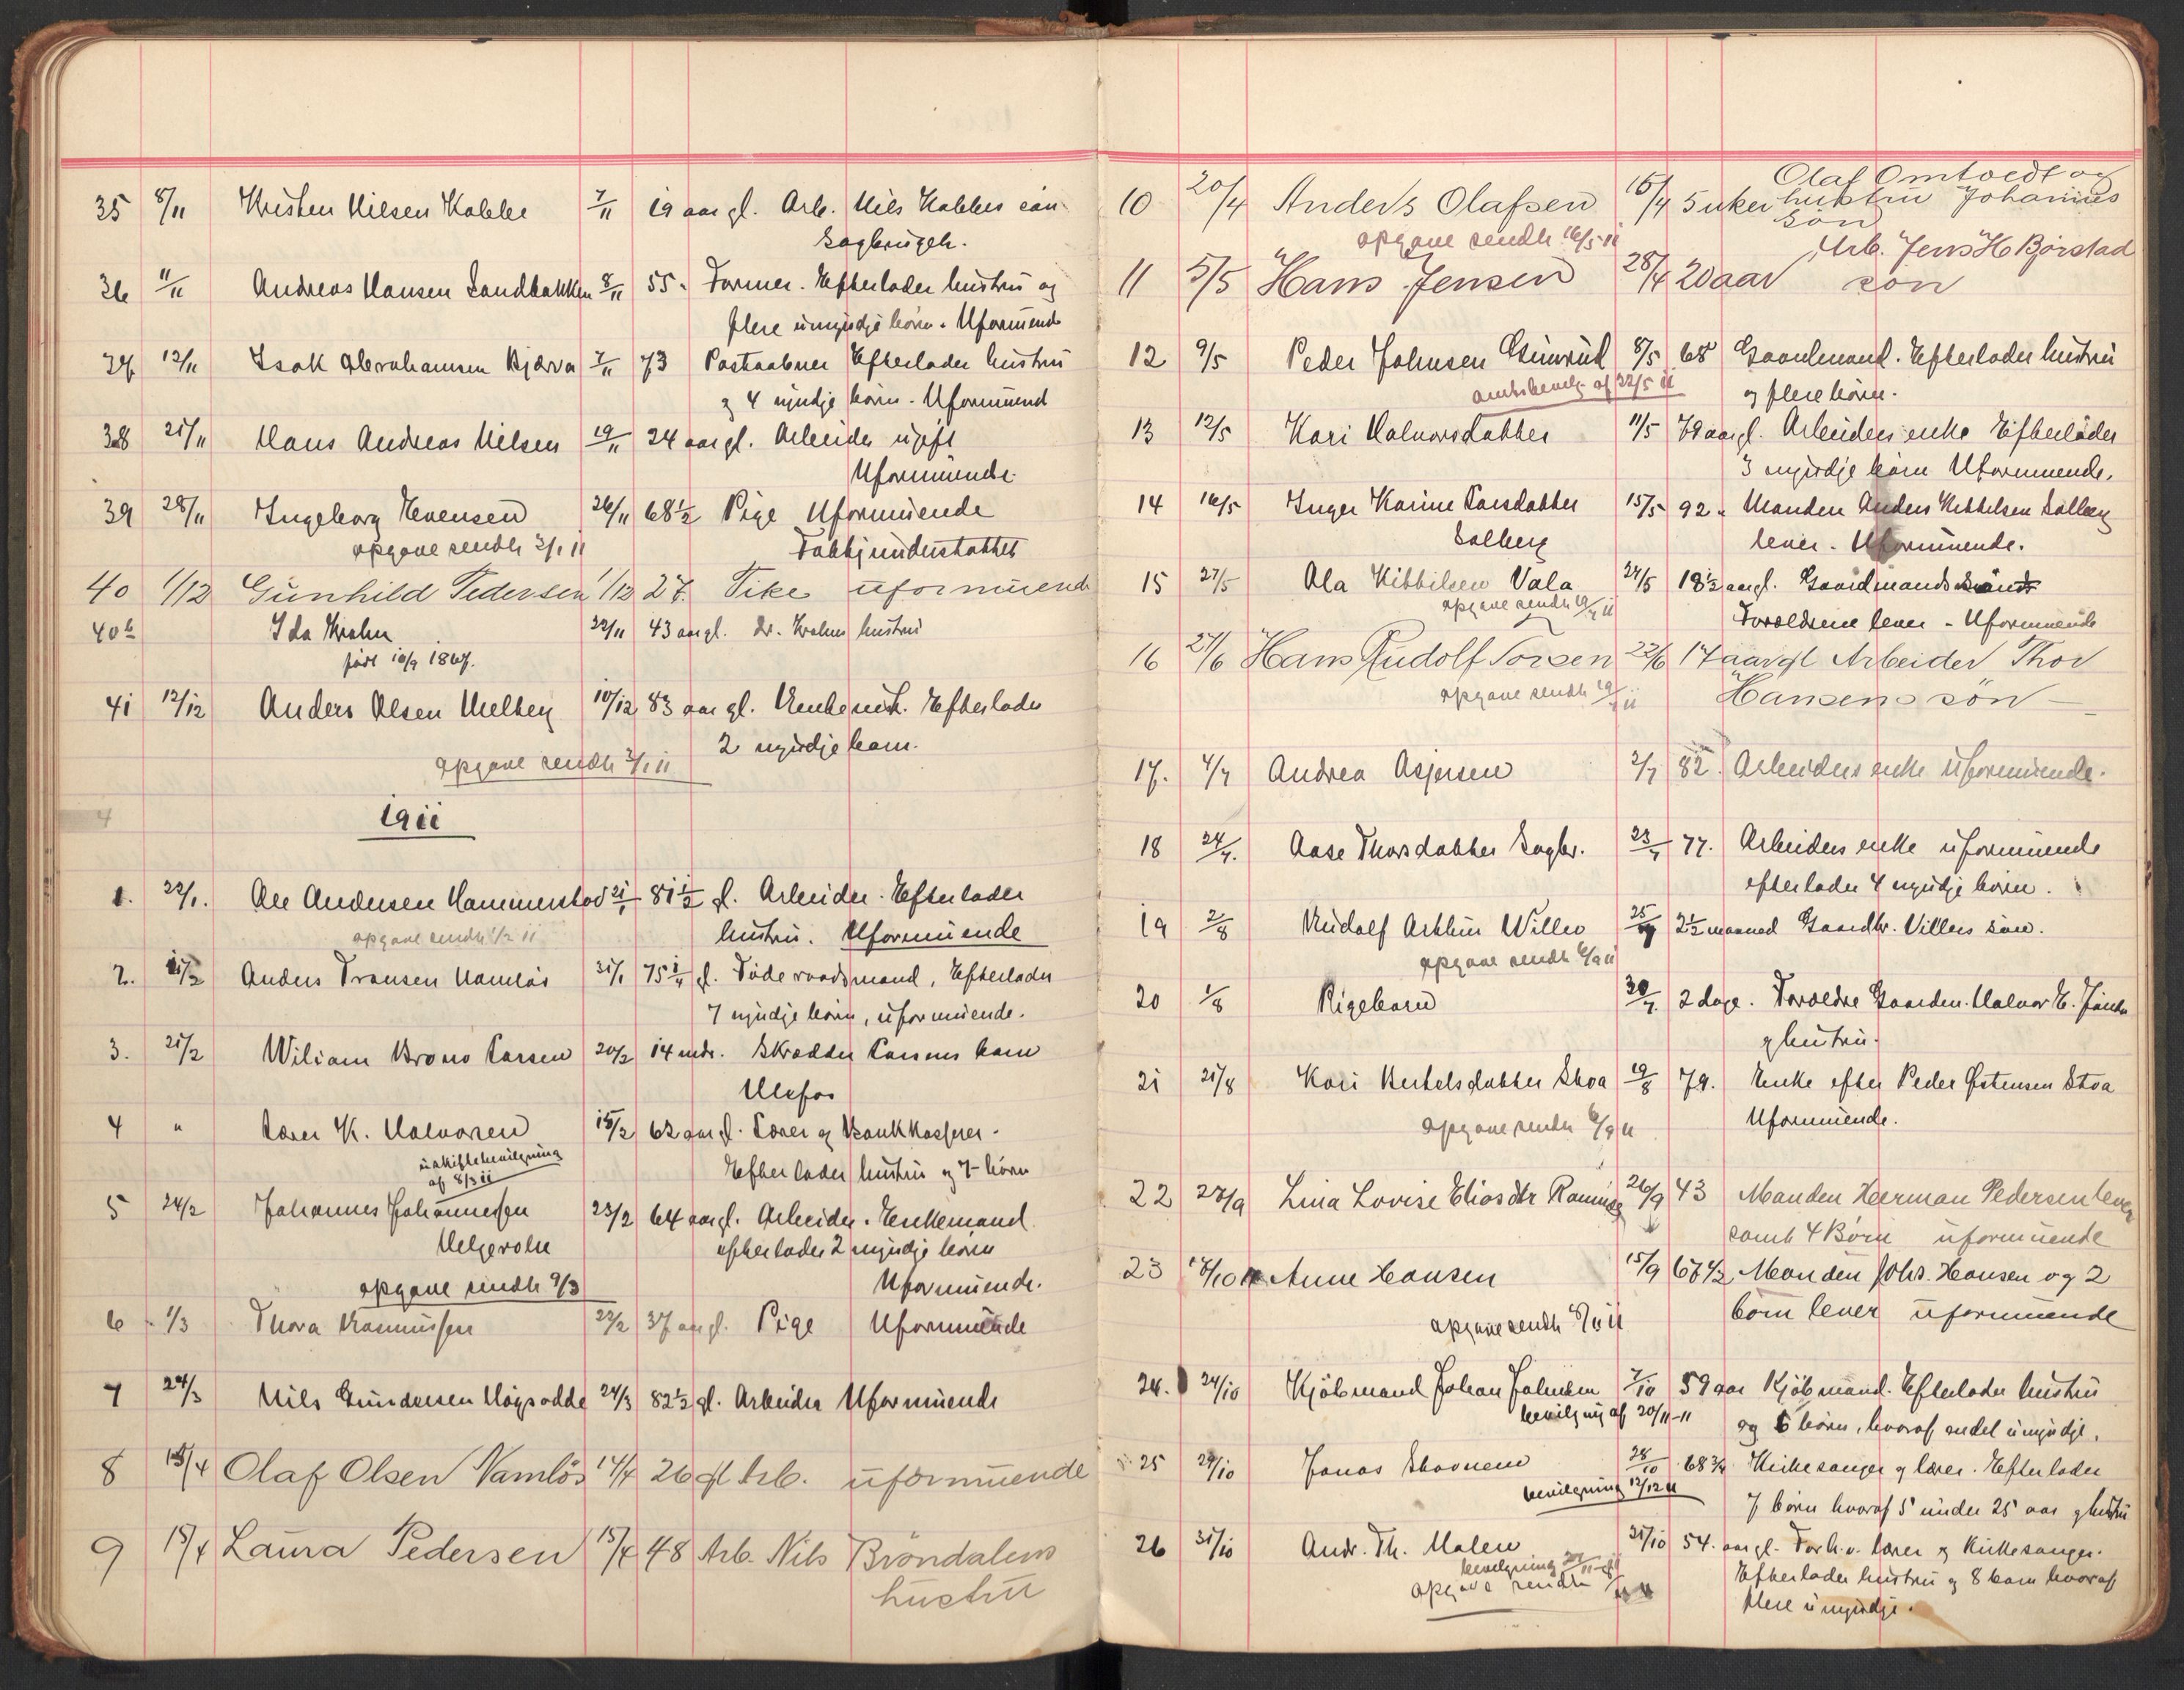 35 8/11 Kristen Nilsen Kabbe 7/11 19 aar gl. Arb. Nils Kabbes søn
Sagbrugeh.
36 11/11 Andreas Hansen Sandbakken 8/11 55. Former. Efterlader hustru og
flere umyndige børn. Uformuende
37 12/11 Isak Abrahamsen Bjærva 7/11 73 Postaabner Efterlader hustru
og 4 myndje børn. Uformuend
38 21/11 Hans Andreas Nilsen 19/11 24 aar gl. Arbeider ugift
Uformuende.
39 28/11 Ingeborg Evensen 26/11 68 1/2 Pige Uformuende
opgave sendt 3/1 11 Fattigunderstøttet
40 1/12 Gunhild Pedersen 1/12 27. Pike uformuende
40b Ida Krohn 22/11 43 aar gl. Dr. Krohns hustru
født 10/9 1867.
41 12/12 Anders Olsen Melbey 10/12 83 aar gl. Enkem. Efterlader
2 myndje barn.
opgave sendt 3/1 11
1911
1. 22/1. Ole Andersen Hammerstad 21/1 81 1/2 gl. Arbeider. Efterlader
opgave sendt 1/2 11 hustru. Uformuende
2. 11/2 Anders Fransen Namløs 31/1 75 1/4 gl. Føderaadsmand, Efterlader
7 myndje børn, uformuende.
3. 21/2 Wiliam Brono Larsen 20/2 14 mdr. Skrædder Larsens barn
Ulefos
4 " Lærer K. Halvorsen 15/2 62 aar gl. Lærer og Bankkasserer.
uskiftebevilgning Efterlader hustru og 7 børn
af 8/3 11
5 24/2 Johannes Johannessen 23/2 64 aar gl. Arbeider. Enkemand
Helgerolse efterlader 2 myndje børn
opgave sendt 9/3 Uformuende.
6 1/3 Thora Rasmussen 22/2 37 aar gl. Pige Uformuende
7 24/3 Nils Gundersen Høgsodde 24/3 82 1/2 gl. Arbeider Uformuende
8 18/4 Olaf Olsen Namløs 14/4 26 gl Arb. uformuende
9 18/4 Laura Pedersen 15/4 48 Arb. Nils Brøndalens
hustru
10 20/4 Anders Olafsen 16/4 5 uker Olaf Omtvedt og
hustru Johannes
søn
opgave sendt 16/5 11
11 5/5 Hans Jensen 28/4 20 aar Arb. Jens H Bjørstad
søn
12 9/5 Peder Johnsen Gunrud 8/5 68 Gaardmand. Efterlader hustru
amtsbevilg af 22/5 11 og flere børn.
13 12/5 Kari Halvorsdatter 11/5 79 aar gl. Arbeiders enke Efterlader
3 myndje børn Uformuende.
14 16/5 Inger Karine Larsdatter 15/5 92. Manden Anders Kettelsen Solberg
Solberg lever. Uformuende.
15 27/5 Ola Kittilsen Vala 24/5 18 1/2 aar gl. Gaardmands søn
opgave sendt 19/7 11 Forældrene lever – Uformuende
16 27/6 Hans Rudolf Torsen 22/6 17 aar gl Arbeider Thor
opgave sendt 19/7 11 Hansens søn –
17. 4/7 Andrea Asjersen 2/7 82. Arbeiders enke uformuende.
18 24/7. Aase Thorsdatter Sagbr. 23/7 77. Arbeiders enke uformuende
efterlader 4 myndje børn.
19 2/8 Rudolf Arthur Willer 25/7 2 1/2 maaned Gaardbr. Villers søn.
opgave sendt 6/9 11
20 1/8 Pigebarn 30/7. 2 dage. Forældre Gaarden. Halvor E.
og hustru.
21 21/8 Kari Kertelsdatter Stoa 19/8 79. Enke efter Peder Østensen Stoa
opgave sendt 6/9 11 Uformuende.
22 28/9 Lina Lovise Eliasdtr Romnes 26/9 43 Manden Herman Pedersen lever
samt 4 Børn uformuende
23 17/10 11 Anne Hansen 15/9 67 1/2 Manden Johs. Hansen og 2
børn lever uformuende
opgave sendt 8/11 11
24. 24/10 Kjøbmand Johan Johnsen 7/10 59 aar Kjøbmand. Efterlader hustru
bevilgning af 20/11-11 og 6 børn, hvoraf endel umyndje.
25 29/10 Jonas Skovnem 28/10 68 3/4 Kirkesanger og lærer. Efterlader
bevilgning 12/12 11 7 børn hvoraf 5 under 25 aar og hustru
26 31/10 Andr. Th. Malen 31/10 54. aar gl. Forh.v. lærer og Kirkesanger.
bevilgning Efterlader hustru og 8 barn hvoraf
opgave sendt flere umyndje.